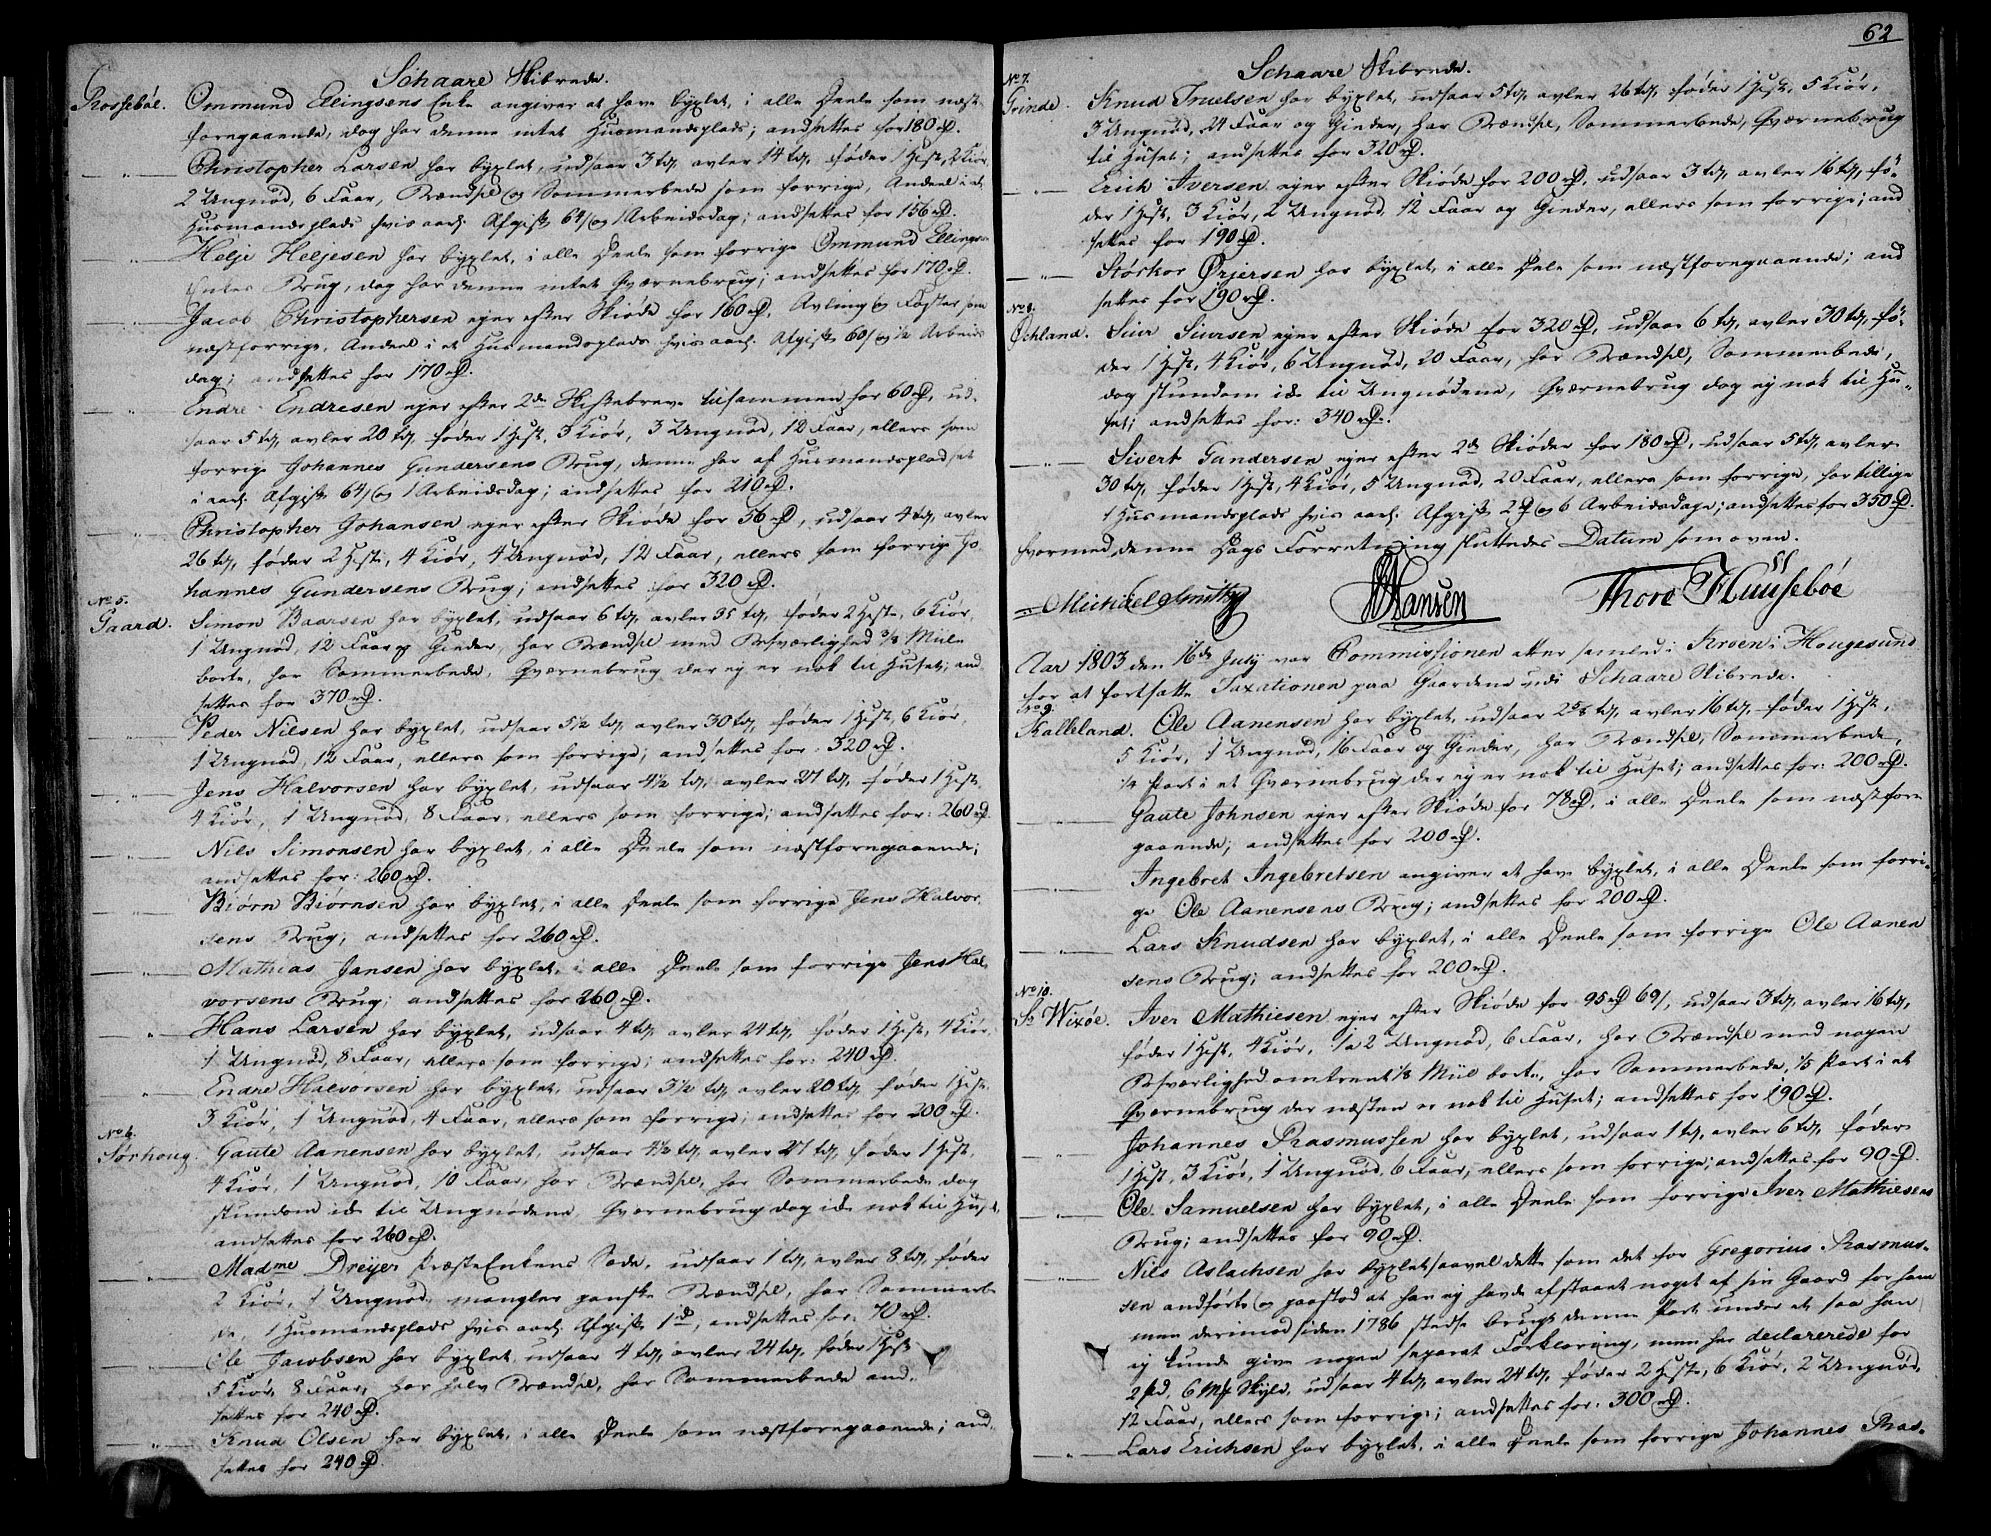 Schaare Skibrede.
Rossebøe. Ommund Ellingsens Enke angiver at have byxlet, i alle Deele som næst
foregaaende, dog har denne intet Huusmandsplads; andsettes for 180 rd.
Christopher Larsen har byxlet, udsaar 3 td, avler 14 td, føder 1 Hest, 2 Kiør,
2 Ungnød, 6 Faar, Brændsel og Sommerbede som forrige, Andeel i et
Husmandsplads hvis aarl. Afgift 64 s og 1 Arbeidsdag; andsettes for 156 rd.
Helje Heljesen har byxlet, i alle Deele som forrige Ommund Ellings
Enkes Brug, dog har denne intet Qværnebrug; andsettes for 170 rd.
Jacob Christophersen ejer efter Skiøde for 160 rd, Avling og Foster som
næstforrige, Andeel i et Husmandsplads hvis aarl. Afgift 60 s og ½ Arbeids
dag; andsettes for 170 rd.
Endre Endresen ejer efter 2de Skiftebreve tilsammen for 60 rd, ud-
saar 5 td, avler 20 td, føder 1 Hest, 3 Kiør, 3 Ungnød, 12 Faar, ellers som
forrige Johannes Gundersens Brug, denne har af Husmandspladset
i aarl. Afgift 64 s og 1 Arbeidsdag; andsettes for 210 rd.
Christopher Johansen ejer efter Skiøde for 56 rd, udsaar 4 td, avler
26 td, føder 2 Heste, 4 Kiør, 4 Ungnød, 12 Faar, ellers som forrige Jo-
hannes Gundersens Brug; andsettes for 320 rd.
No 5.
Gaard. Simon Baarsen har byxlet, udsaar 6 td, avler 35 td, føder 2 Heste, 6 Kiør,
1 Ungnød, 12 Faar og Gieder, har Brændsel med Besværlighed 3/8 Miile
borte, har Sommerbede, Qværnebrug der ej er nok til Huset; and-
settes for 370 rd.
Peder Nilsen har byxlet, udsaar 5½ td, avler 30 td, føder 1 Hest, 6 Kiør,
1 Ungnød, 12 Faar, ellers som forrige; andsettes for: 320 rd.
Jens Halvorsen har byxlet, udsaar 4½ td, avler 27 td, føder 1 Hest,
4 Kiør, 1 Ungnød, 8 Faar, ellers som forrige; andsettes for: 260 rd.
Nils Simonsen har byxlet, i alle Deele som næstforegaaende;
andsettes for: 260 rd.
Biørn Biørnsen har byxlet, i alle Deele som forrige Jens Halvor-
sens Brug; andsettes for 260 rd.
Mathias Jansen har byxlet, i alle Deele som forrige Jens Hal-
vorsens Brug; andsettes for 260 rd.
Hans Larsen har byxlet, udsaar 4 td, avler 24 td, føder 1 Hest, 4 Kiør,
1 Ungnød, 8 Faar, ellers som forrige; andsettes for: 240 rd.
Endre Halvorsen har byxlet, udsaar 3½ td, avler 20 td, føder 1 Hest,
3 Kiør, 1 Ungnød, 4 Faar, ellers som forrige; andsettes for 200 rd.
No 6.
Sørhoug. Gaute Aanensen har byxlet, udsaar 4½ td, avler 27 td, føder 1 Hest,
4 Kiør, 1 Ungnød, 10 Faar, har Brændsel, har Sommerbede dog
stundom ide til Ungnødene, Qværnebrug dog ide nok til Huset,
andsettes for 260 rd.
Madme Dreyer PræsteEnkens Sæde, udsaar 1 td, avler 8 td, føder
2 Kiør, 1 Ungnød, mangler ganske Brændsel, har Sommerbe-
de, 1 Husmandsplads hvis aarl. Afgift 1 d, andsettes for: 70 rd.
Ole Jacobsen har byxlet, udsaar 4 td, avler 24 td, føder 1 Hest
5 Kiør, 8 Faar, har halv Brændsel, har Sommerbede and-
settes for 240 rd.
Knud Olsen har byxlet, i alle Deele som næstforegaaende; and-
settes for 240 rd.
62
Schaare Skibrede.
No 7.
Grinde. Knud Truelsen har byxlet, udsaar 5 td, avler 26 td, føder 1 Hest, 5 Kiør,
3 Ungnød, 24 Faar og Gieder, har Brændsel, Sommerbede, Qværnebrug
til Huset; andsettes for 320 rd.
Erich Iversen ejer efter Skiøde for 200 rd, udsaar 3 td, avler 16 td, fø-
der 1 Hest, 3 Kiør, 2 Ungnød, 12 Faar og Gieder, ellers som forrige; and
settes for 190 rd.
Størkor Ørjersen har byxlet, i alle Deele som næstforegaaende; and
settes for 190 rd.
No 8.
Øchland. Siur Siursen ejer efter Skiøde for 320 rd, udsaar 6 td, avler 30 td, fø-
der 1 Hest, 4 Kiør, 6 Ungnød, 20 Faar, har Brændsel, Sommerbede,
dog stundom ide til Ungnødene, Qværnebrug dog ej nok til Hu-
set; andsettes for: 340 rd.
Sivert Gundersen ejer efter 2de Skiøder for 180 rd, udsaar 5 td, avler
30 td, føder 1 Hest, 4 Kiør, 5 Ungnød, 20 Faar, ellers som forrige, har tillige
1 Husmandsplads hvis aarl. Afgift 2 rd og 6 Arbeidsdage; andsettes for 350 rd.
hvormed denne Dags Forretning sluttedes Datum som oven.
Michael Smith HHansen Thore Huusebøe
Aar 1803 den 16de July var Commissionen atter samlet i Kroen i Hougesund
for at fortsætte Taxationen paa Gaardene udi Schaare Skibrede.
No 9.
Kalleland. Ole Aanensen har byxlet, udsaar 2⅝ td, avler 16 td, føder 1 Hest,
5 Kiør, 1 Ungnød, 16 Faar og Gieder, har Brændsel, Sommerbede,
¼ Part i et Qværnebrug der ej er nok til Huset; andsettes for: 200 rd.
Gaute Johnsen ejer efter Skiøde for 78 rd, i alle Deele som næstfore
gaaende; andsettes for 200 rd.
Ingebret Ingebretsen angiver at have byxlet, i alle Deele som forri-
ge Ole Aanensens Brug; andsettes for 200 rd.
Lars Knudsen har byxlet, i alle Deele som forrige Ole Aanen
sens Brug; andsettes for 200 rd.
No 10.
Sr Wixøe. Iver Mathiesen ejer efter Skiøde for 95 rd 69 s, udsaar 3 td, avler 16 td,
føder 1 Hest, 4 Kiør, 1 a 2 Ungnød, 6 Faar, har Brændsel med nogen
Besværlighed omtrent ⅛ Miil borte, har Sommerbede, 1/5 Part i et
Qværnebrug der næsten er nok til Huset; andsettes for 190 rd.
Johannes Rasmussen har byxlet, udsaar 1 td, avler 6 td, føder
1 Hest, 3 Kiør, 1 Ungnød, 6 Faar, ellers som forrige; andsettes for 90 rd.
Ole Samuelsen har byxlet, i alle Deele som forrige Iver Mathiesens
Brug; andsettes for 90 rd.
Nils Aslachsen har byxlet saavel dette som det for Gregorius Rasmus-
sen andførte og paastod at han ej havde afstaaet noget af sin Gaard for ham
men derimod siden 1786 stedse brugt denne Part under et saa han
ej kunde give nogen separat Forklaring, men har declarerede for
2 Pd, 6 Mk Skyld, udsaar 4 td, avler 24 td, føder 2 Heste, 6 Kiør, 2 Ungnød,
12 Faar, ellers som forrige; andsettes for: 300 rd.
Lars Erichsen har byxlet, i alle Deele som forrige Johannes Ras-